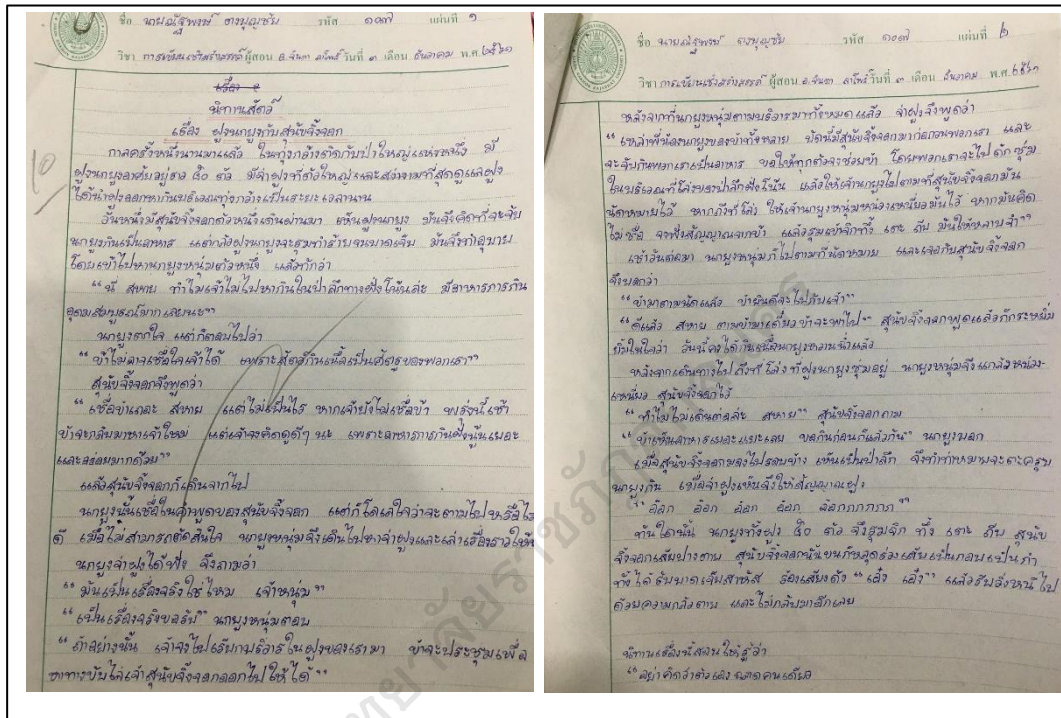 ชื่อ นายณัฐพงษ์ ตางบุญชัย รหัส ๑๐๗ แผ่นที่ ๑
วิชา การเขียนเชิงสร้างสรรค์ ผู้สอน อ.จินดา วันที่ ๓ เดือน ธันวาคม พ.ศ. ๒๕๖๑
นิทานสัตว์
เรื่อง ฝูงนกยูงกับสุนัขจิ้งจอก
๑๐
กาลครั้งหนึ่งนานมาแล้ว ในทุ่งกว้างติดกับป่าใหญ่แห่งหนึ่ง มี
ฝูงนกยูงอาศัยอยู่ราว ๕๐ ตัว มีจ่าฝูงที่ตัวใหญ่และสง่างามที่สุดดูแลฝูง
ได้นำฝูงออกหากินบริเวณทุ่งกว้างเป็นระยะเวลานาน
วันหนึ่งมีสุนัขจิ้งจอกตัวหนึ่งเดินผ่านมา เห็นฝูงนกยูง มันจึงคิดที่จะจับ
นกยูงกินเป็นอาหาร แต่กลัวฝูงนกยูงจะรุมทำร้ายจนบาดเจ็บ มันจึงทำอุบาย
โดยเข้าไปหานกยูงหนุ่มตัวหนึ่ง แล้วกล่าวว่า
“นี่ สหาย ทำไมเจ้าไม่ไปหากินในป่าลึกทางฝั่งโน้นล่ะ มีอาหารการกิน
อุดมสมบูรณ์มากเลยนะ”
นกยูงตกใจ แต่ก็ตอบไปว่า
“ข้าไม่อาจเชื่อใจเจ้าได้ เพราะสัตว์กินเนื้อเป็นศัตรูของพวกเรา”
สุนัขจิ้งจอกจึงพูดว่า
“เชื่อข้าเถอะ สหาย แต่ไม่เป็นไร หากเจ้ายังไม่เชื่อข้า พรุ่งนี้เช้า
ข้าจะกลับมาหาเจ้าใหม่ แต่เจ้าจงคิดดูดีๆ นะ เพราะอาหารการกินฝั่งนู้นเยอะ
และอร่อยมากด้วย”
แล้วสุนัขจิ้งจอกก็เดินจากไป
นกยูงนั้นเชื่อในคำพูดของสุนัขจิ้งจอก แต่ก็ว่าจะตามไปหรือไม่
ดี เมื่อไม่สามารถตัดสินใจ นกยูงหนุ่มจึงเดินไปหาจ่าฝูงและเล่าเรื่องราวให้ฟัง
นกยูงจ่าฝูงได้ฟัง จึงถามว่า
“มันเป็นเรื่องจริงใช่ไหม เจ้าหนุ่ม”
“เป็นเรื่องจริงขอรับ” นกยูงหนุ่มตอบ
“ถ้าอย่างนั้น เจ้าจงไปเรียกบริวารในฝูงของเรามา ข้าจะประชุมเพื่อ
หาทางขับไล่เจ้าสุนัขจิ้งจอกออกไปให้ได้”
ชื่อ นายณัฐพงษ์ ตางบุญชัย รหัส ๑๐๗ แผ่นที่ ๒
วิชา การเขียนเชิงสร้างสรรค์ ผู้สอน อ.จินดา วันที่ ๓ เดือน ธันวาคม พ.ศ. ๒๕๖๑
หลังจากที่นกยูงหนุ่มตามบริวารมาทั้งหมดแล้ว จ่าฝูงจึงพูดว่า
“เหล่าพี่น้องนกยูงของข้าทั้งหลาย บัดนี้มีสุนัขจิ้งจอกมาก่อกวนพวกเรา และ
จะจับกินพวกเราเป็นอาหาร ขอให้ทุกตัวจงช่วยข้า โดยพวกเราจะไปดักซุ่ม
ในบริเวณที่โล่งของป่าลึกฝั่งโน้น แล้วให้เจ้านกยูงไปตามที่สุนัขจิ้งจอกมัน
นัดหมายไว้ หากถึงที่โล่ง ให้เจ้านกยูงหนุ่มหน่วงเหนี่ยวมันไว้ หากมันคิด
ไม่ซื่อ จงฟังสัญญาณจากข้า แล้วรุมเข้าจิกทึ้ง เตะ ถีบ มันให้หลาบจำ”
เช้าวันต่อมา นกยูงหนุ่มก็ไปตามที่นัดหมาย และเจอกับสุนัขจิ้งจอก
จึงบอกว่า
“ข้ามาตามนัดแล้ว ข้ายินดีจะไปกับเจ้า”
“ดีแล้ว สหาย ตามข้ามาเดี๋ยวข้าจะพาไป” สุนัขจิ้งจอกพูดแล้วก็กระหยิ่ม
ยิ้มในใจว่า วันนี้จะได้กินเนื้อนกยูงหวานฉ่ำแล้ว
หลังจากเดินทางไปถึงที่โล่งที่ฝูงนกยูงซุ่มอยู่ นกยูงหนุ่มจึงแกล้งหน่วง-
เหนี่ยว สุนัขจิ้งจอกไว้
“ทำไมไม่เดินต่อล่ะ สหาย” สุนัขจิ้งจอกถาม
“ข้าเห็นอาหารเยอะแยะเลย ขอกินก่อนก็แล้วกัน” นกยูงบอก
เมื่อสุนัขจิ้งจอกมองไปรอบข้าง เห็นเป็นป่าลึก จึงทำท่าหมายจะตะครุบ
นกยูงกิน เมื่อจ่าฝูงเห็นจึงให้สัญญาณฝูง
“อ๊อก อ๊อก อ๊อก อ๊อก อ๊อกกกกกก”
ทันใดนั้น นกยูงทั้งฝูง ๕๐ ตัว จึงรุมจิก ทึ้ง เตะ ถีบ สุนัข
จิ้งจอกเสียปางตาย สุนัขจิ้งจอกนั้นขนก็หลุดร่วงเส้นเป็นกอบเป็นกำ
ทั้งได้รับบาดเจ็บสาหัส ร้องเสียงดัง “เอ๋ง เอ๋ง” แล้วรีบวิ่งหนีไป
ด้วยความกลัวตาย และไม่กลับมาอีกเลย
นิทานเรื่องนี้สอนให้รู้ว่า
“อย่าคิดว่าตัวเองฉลาดคนเดียว